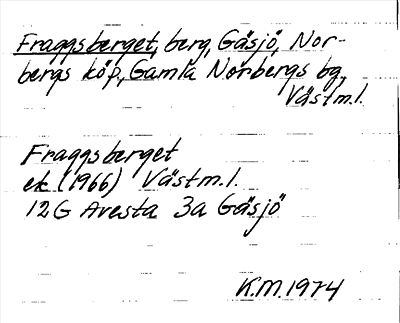 Fraggsberget, berg, Gåsjö, Nor-
bergs köp, Gamla Norbergs bg,
Västm.l.
Fraggsberget
ek (1966) Västm.l.
12G Avesta 3a Gåsjö
K.M. 1974